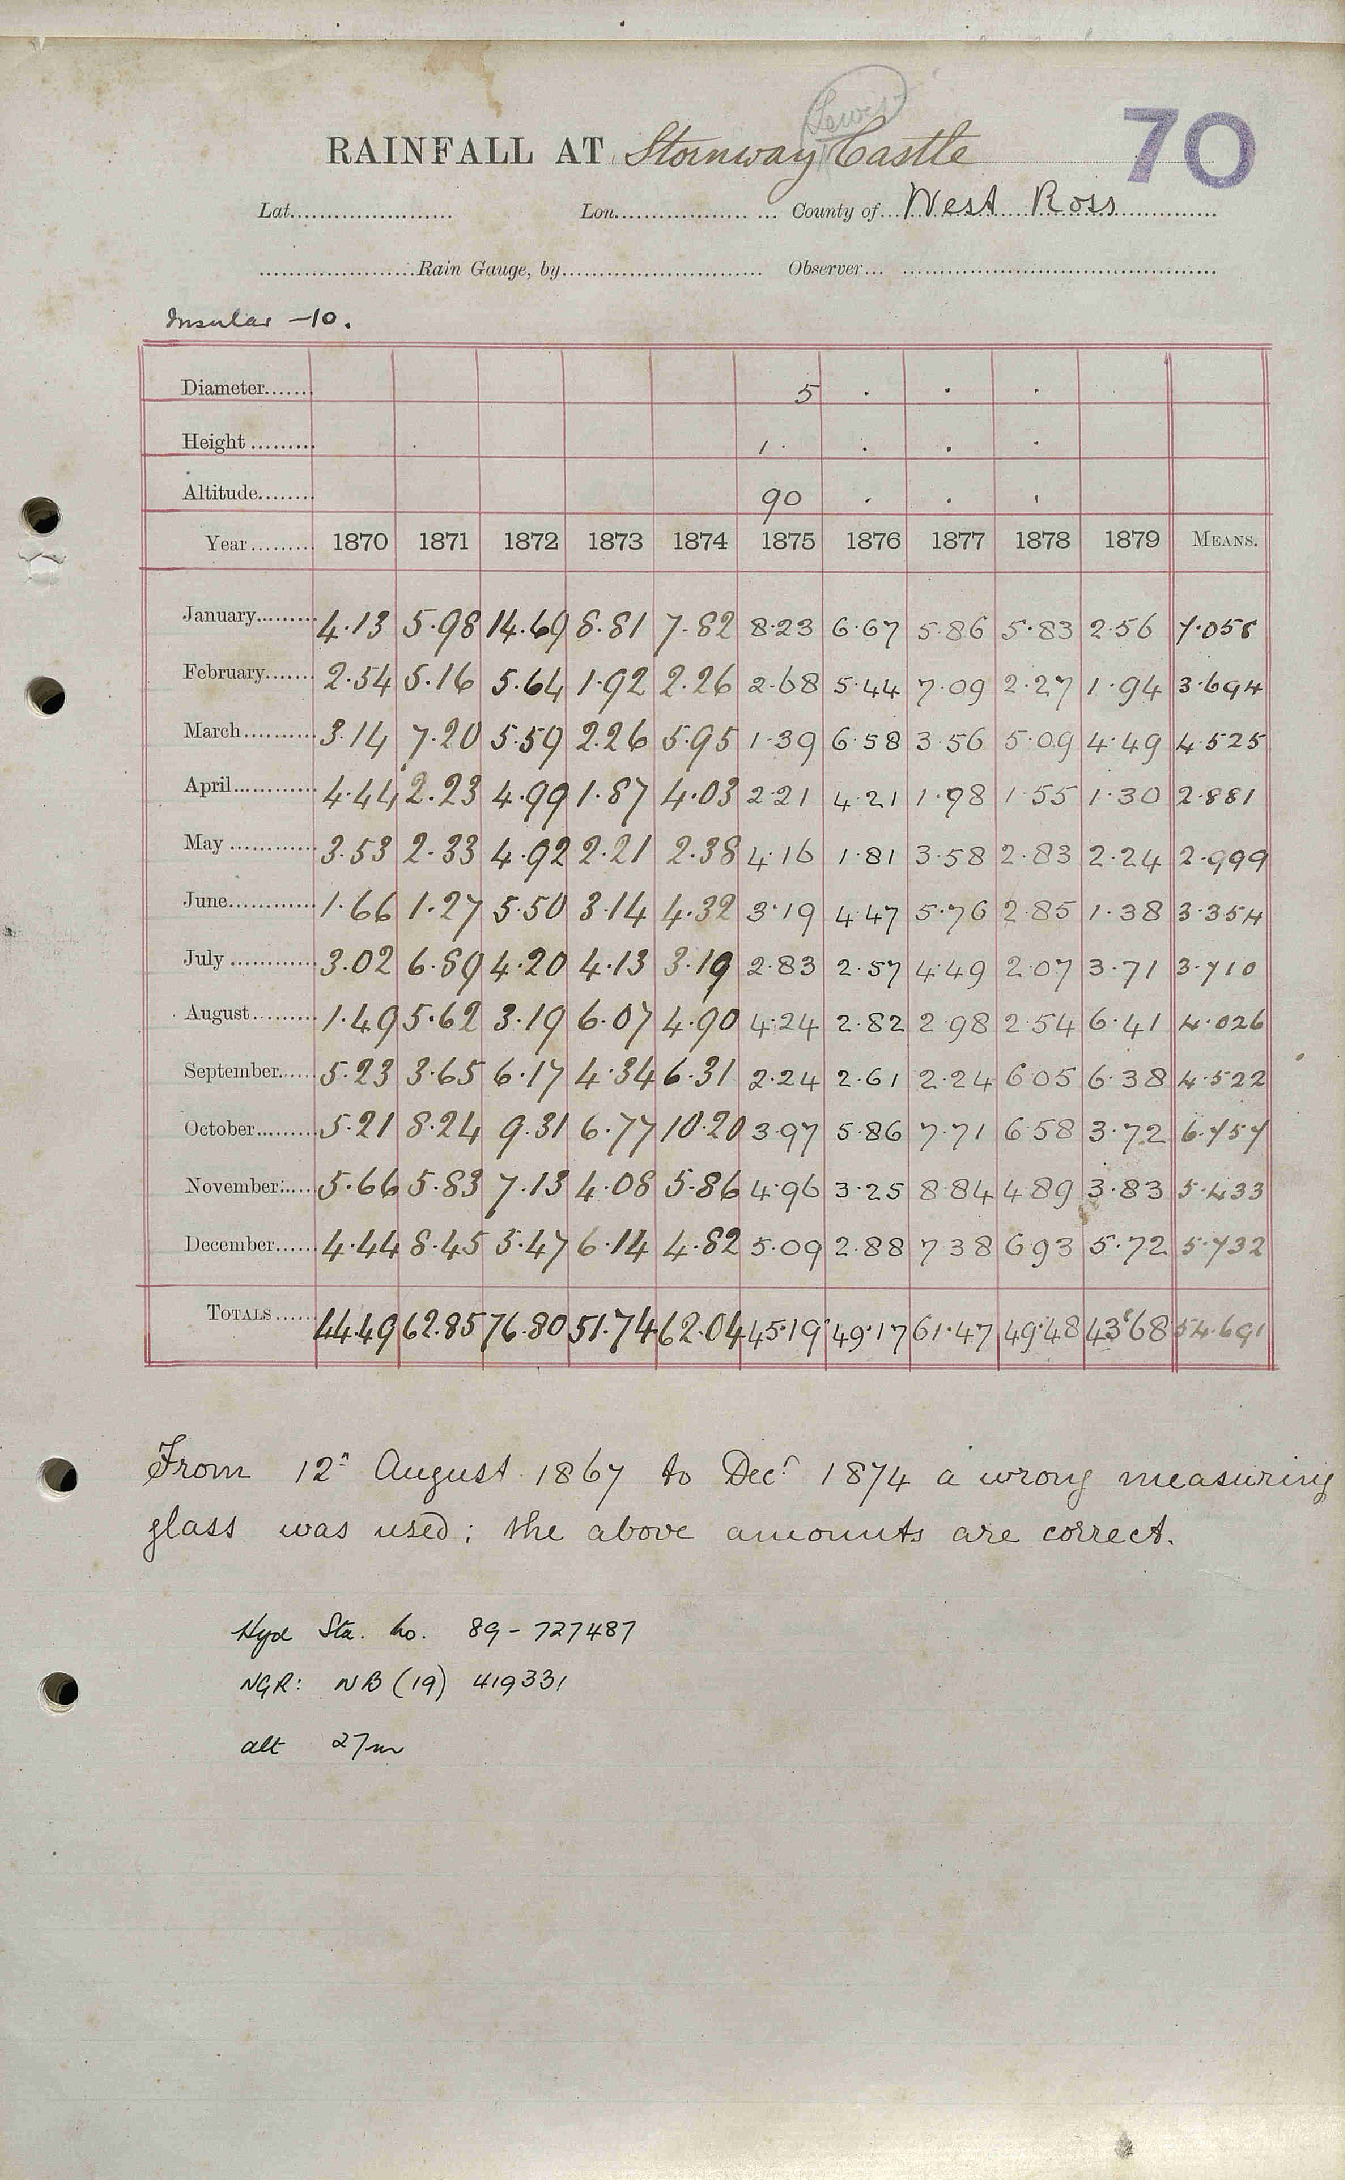 70
Lews
RAINFALL AT Stornway Castle
Lat. Lon. County of West Ross
Rain Gauge, by Observer
Insular -10.
Diameter 5 . . .
Height 1. . . .
Altitude 90 . . .
Year 1870 1871 1872 1873 1874 1875 1876 1877 1878 1879 MEANS.
January 4.13 5.98 14.69 8.81 7.82 8.23 6.67 5.86 5.83 2.56 7.058
February 2.54 5.16 5.64 1.92 2.26 2.68 5.44 7.09 2.27 1.94 3.694
March 3.14 7.20 5.59 2.26 5.95 1.39 6.58 3.56 5.09 4.49 4.525
April 4.44 2.23 4.99 1.87 4.03 2.21 4.21 1.98 1.55 1.30 2.881
May 3.53 2.33 4.92 2.21 2.38 4.16 1.81 3.58 2.83 2.24 2.999
June 1.66 1.27 5.50 3.14 4.32 3.19 4.47 5.76 2.85 1.38 3.354
July 3.02 6.89 4.20 4.13 3.19 2.83 2.57 4.49 2.07 3.71 3.710
August 1.49 5.62 3.19 6.07 4.90 4.24 2.82 2.98 2.54 6.41 4.026
September 5.23 3.65 6.17 4.34 6.31 2.24 2.61 2.24 6.05 6.38 4.522
October 5.21 8.24 9.31 6.77 10.20 3.97 5.86 7.71 6.58 3.72 6.757
November 5.66 5.83 7.13 4.08 5.86 4.96 3.25 8.84 4.89 3.83 5.433
December 4.44 8.45 5.47 6.14 4.82 5.09 2.88 7.38 6.93 5.72 5.732
TOTALS 44.49 62.85 76.80 51.74 62.04 45.19 49.17 61.47 49.48 43.68 54.691
From 12th August 1867 to Decr 1874 a wrong measuring
glass was used; the above amounts are correct.
Hyd Sta. No. 89-727487
NGR: NB (19) 419331
alt 27m